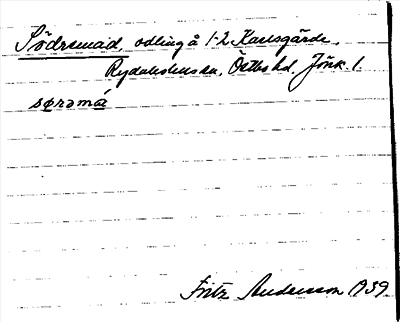 Södremad, odling å 1-2 Karlsgärde,
Rydaholms sn, Östbo hd. Jönk. l.
sørəmá
Fritz Andersson 1939